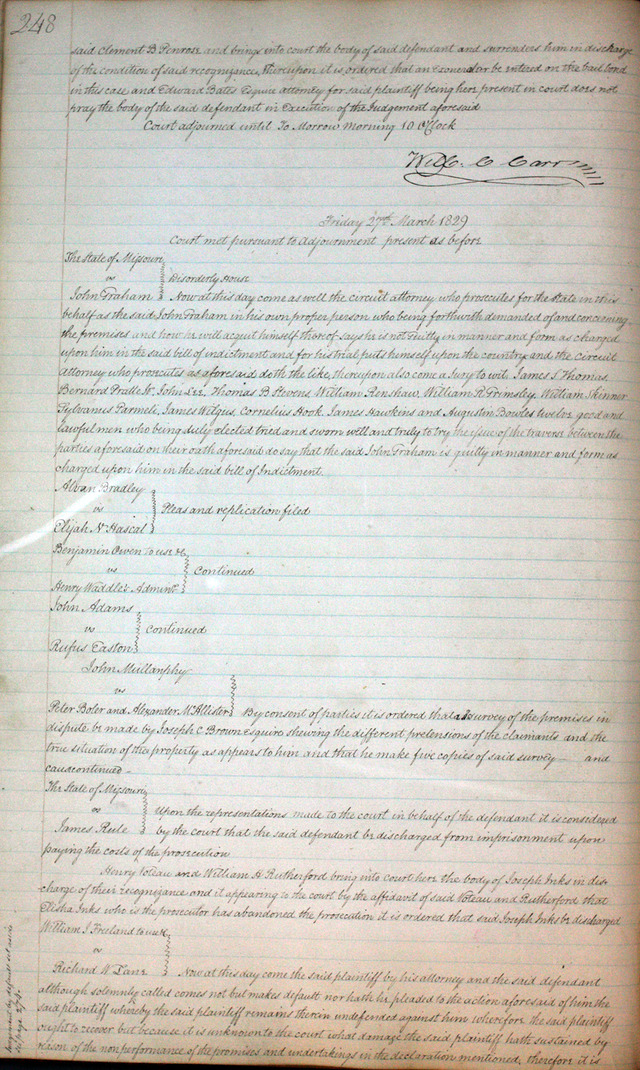 248
said Clement B Penrose and brings into court the body of said defendant and surrenders him in discharge
of the condition of said recognizance, thereupon it is ordered that an exonerator be entered on the bail bond
in this case and Edward Bates Esquire attorney for said plaintiff being here present in court does not
pray the body of the said defendant in Execution of the Judgement aforesaid
Court adjourned until To Morrow morning 10 O'Clock
Will. C Carr
Friday 27th March 1829
Court met pursuant to adjournment present as before
The State of Missouri
vs
Disorderly House
John Graham Now at this day come as well the circuit attorney who prosecutes for the State in this
behalf as the said John Graham in his own proper person who being forthwith demanded of and concerning
the premises and how he will acquit himself thereof says he is not guilty in manner and form as charged
upon him in the said bill of indictment and for his trial puts himself upon the country and the circuit
attorney who prosecutes as aforesaid doth the like, thereupon also come a Jury to wit James S Thomas,
Bernard Pratte Jr. John Lee, Thomas B Stevens William Renshaw, William R Grimsley, William Skinner
Sylvanus Parmele, James Wilgus, Cornelius Hook James Hawkins and Augustin Bowles twelve good and
lawful men who being duly elected tried and sworn well and truly to try the issue of the traverse between the
parties aforesaid on their oath aforesaid do say that the said John Graham is guilty in manner and form as
charged upon him in the said bill of Indictment.
Alvan Bradley
vs
Pleas and replication filed
Elijah N Hascal
Benjamin Owen to use &c
vs
Continued
Henry Waddle's Adminr
John Adams
vs
Continued
Rufus Easton
John Mullanphy
vs
Peter Boler and Alexander McAllister By consent of parties it is ordered that a survey of the premises in
dispute be made by Joseph C Brown esquire shewing the different pretensions of the claimants and the
true situation of the property as appears to him and that he make five copies of said survey — and
cause continued —
The State of Missouri
vs
Upon the representations made to the court in behalf of the defendant it is considered
James Rule by the court that the said defendant be discharged from imprisonment upon
paying the costs of the prosecution
Henry Voteau and William H Rutherford bring into court here the body of Joseph Inks in dis-
charge of their recognizance and it appearing to the court by the affidavit of said Voteau and Rutherford that
Elisha Inks who is the prosecutor has abandoned the prosecution it is ordered that said Joseph Inks be discharged
William J Freeland to use &c
vs
Richard W Now at this day come the said plaintiff by his attorney and the said defendant
although solemnly called comes not but makes default nor hath he pleaded to the action aforesaid of him the
said plaintiff whereby the said plaintiff remains therein undefended against him wherefore the said plaintiff
ought to recover but because it is unknown to the court what damage the said plaintiff hath sustained by
reason of the nonperformance of the promises and undertakings in the declaration mentioned, therefore it is
Judgment by default set aside
see page 274.